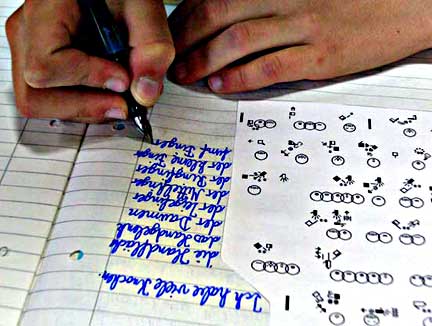 Ich habe viele Knochen.
die Handfläche
das Handgelenk
der Daumen
der Zeigefinger
der Mittelfinger
der Ringfinger
der kleine Finger
fünf Finger